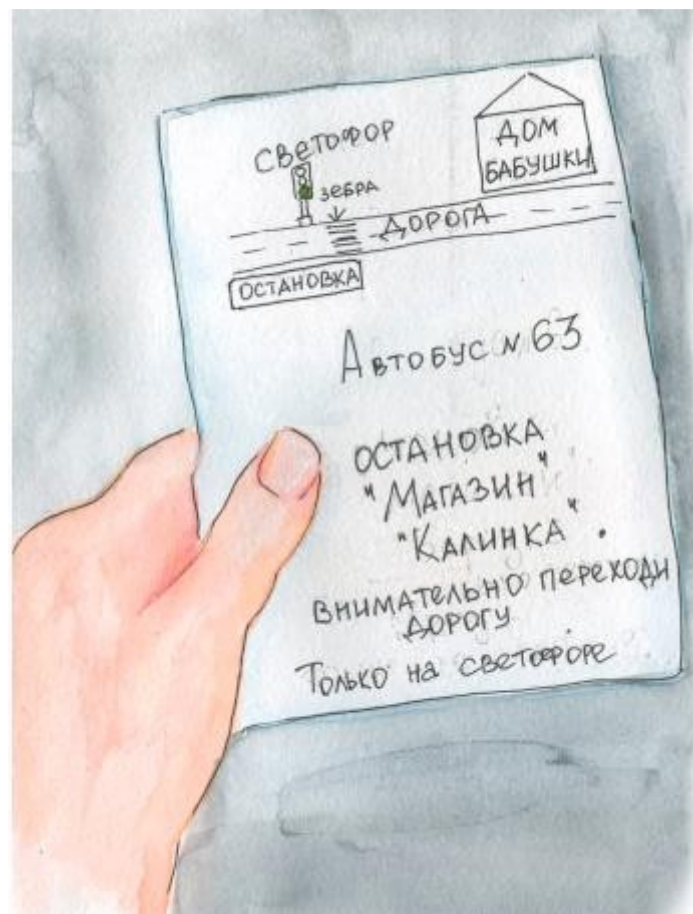 СВЕТОФОР
ЗЕБРА
ДОМ
БАБУШКИ
ДОРОГА
ОСТАНОВКА
АВТОБУС N 63
ОСТАНОВКА
"МАГАЗИН"
"КАЛИНКА".
ВНИМАТЕЛЬНО ПЕРЕХОДИ
ДОРОГУ
Только на светофоре